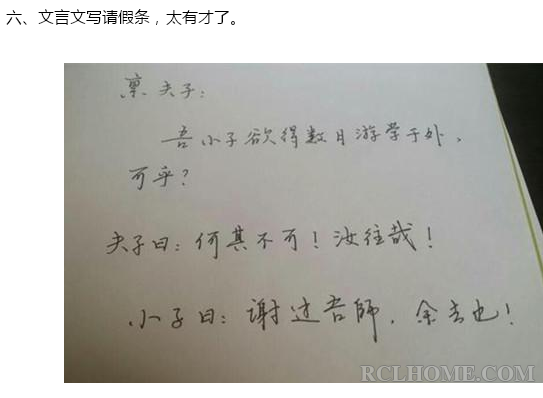 六、文言文写请假条，太有才了。
禀夫子：
吾小子欲得数日游学于外，
可乎？
夫子曰：何其不可！汝往哉！
小子曰：谢过吾師，余去也！
RCLHOME.COM